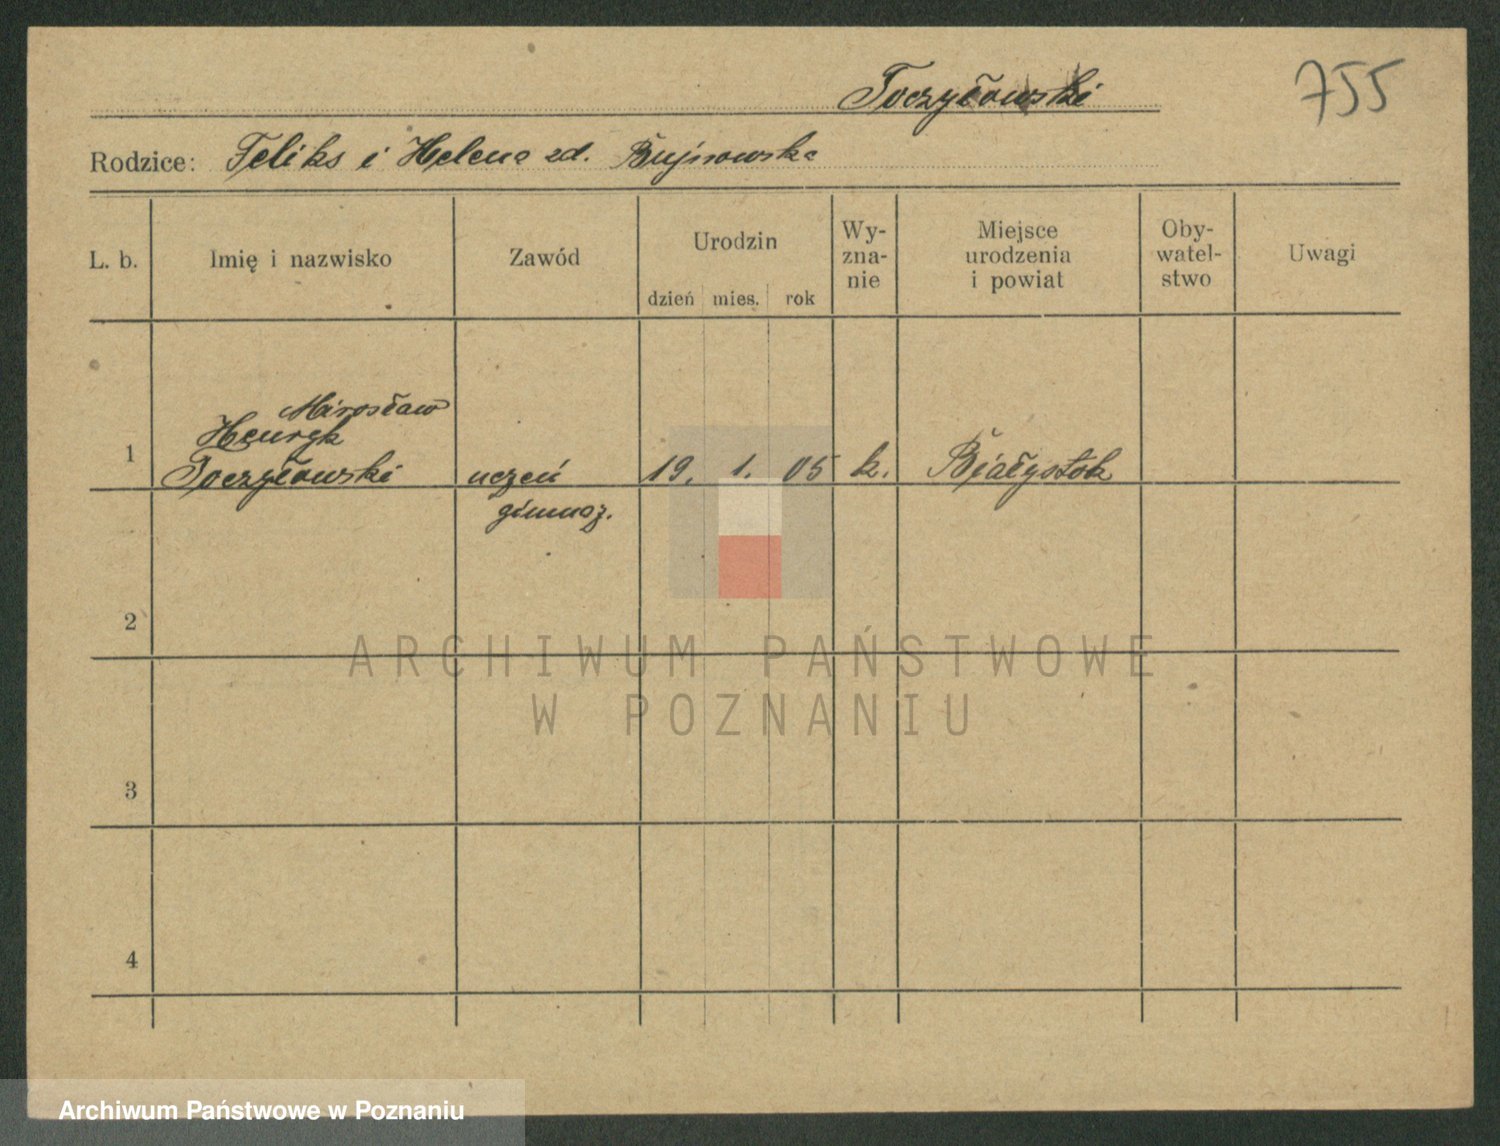 Toczyłowski
755
Rodzice: Feliks i Helena zd. Bujnowska
L. b.
Imię i nazwisko
Zawód
Urodzin
dzień mies. rok
Wy-
zna-
nie
Miejsce
urodzenia
i powiat
Oby-
watel-
stwo
Uwagi
1
Mirosław
Henryk
Toczyłowski
uczeń
gimnaz.
19. 1. 05
k.
Białystok
2
3
4
ARCHIWUM PAŃSTWOWE
W POZNANIU
Archiwum Państwowe w Poznaniu